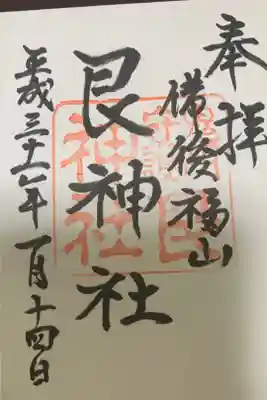 奉拝
備後福山
艮神社
平成三十一年一月十四日